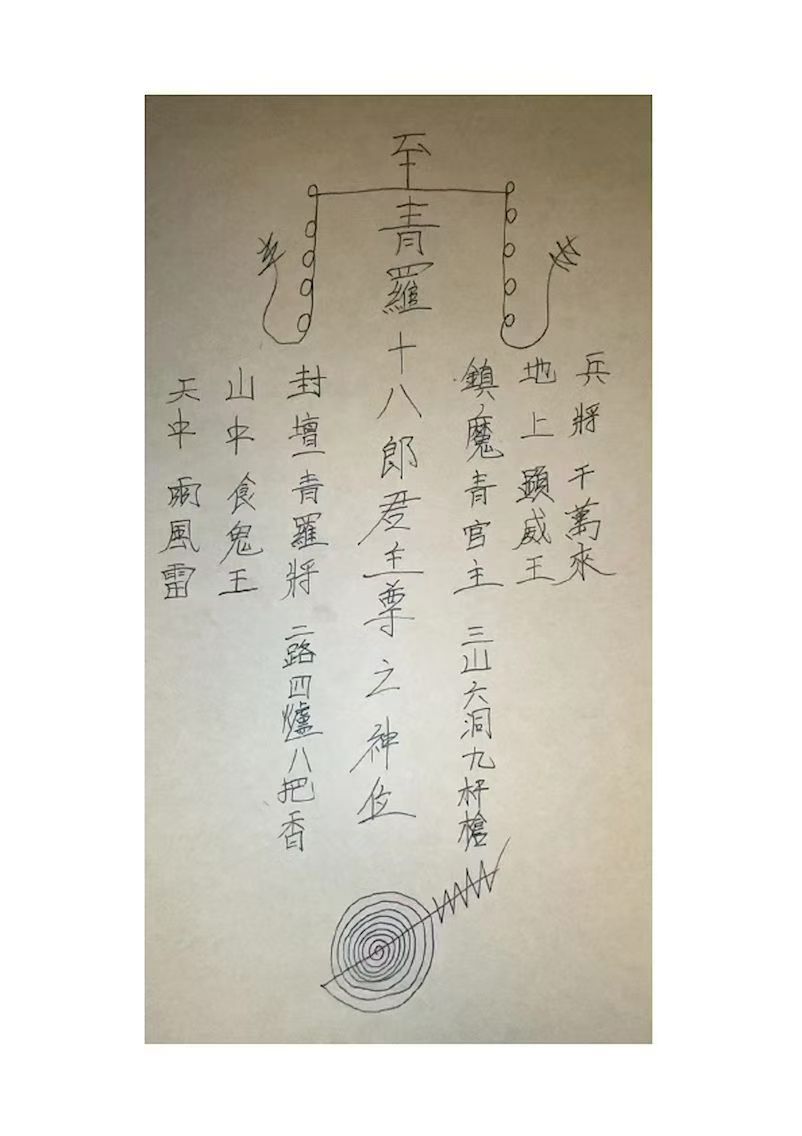 兵將千萬來
地上顯威王
鎮魔青官主 三山六洞九杆槍
至青羅十八郎君至尊之神位
封壇青羅將 二路四爐八把香
山中食鬼王
天中雨風雷